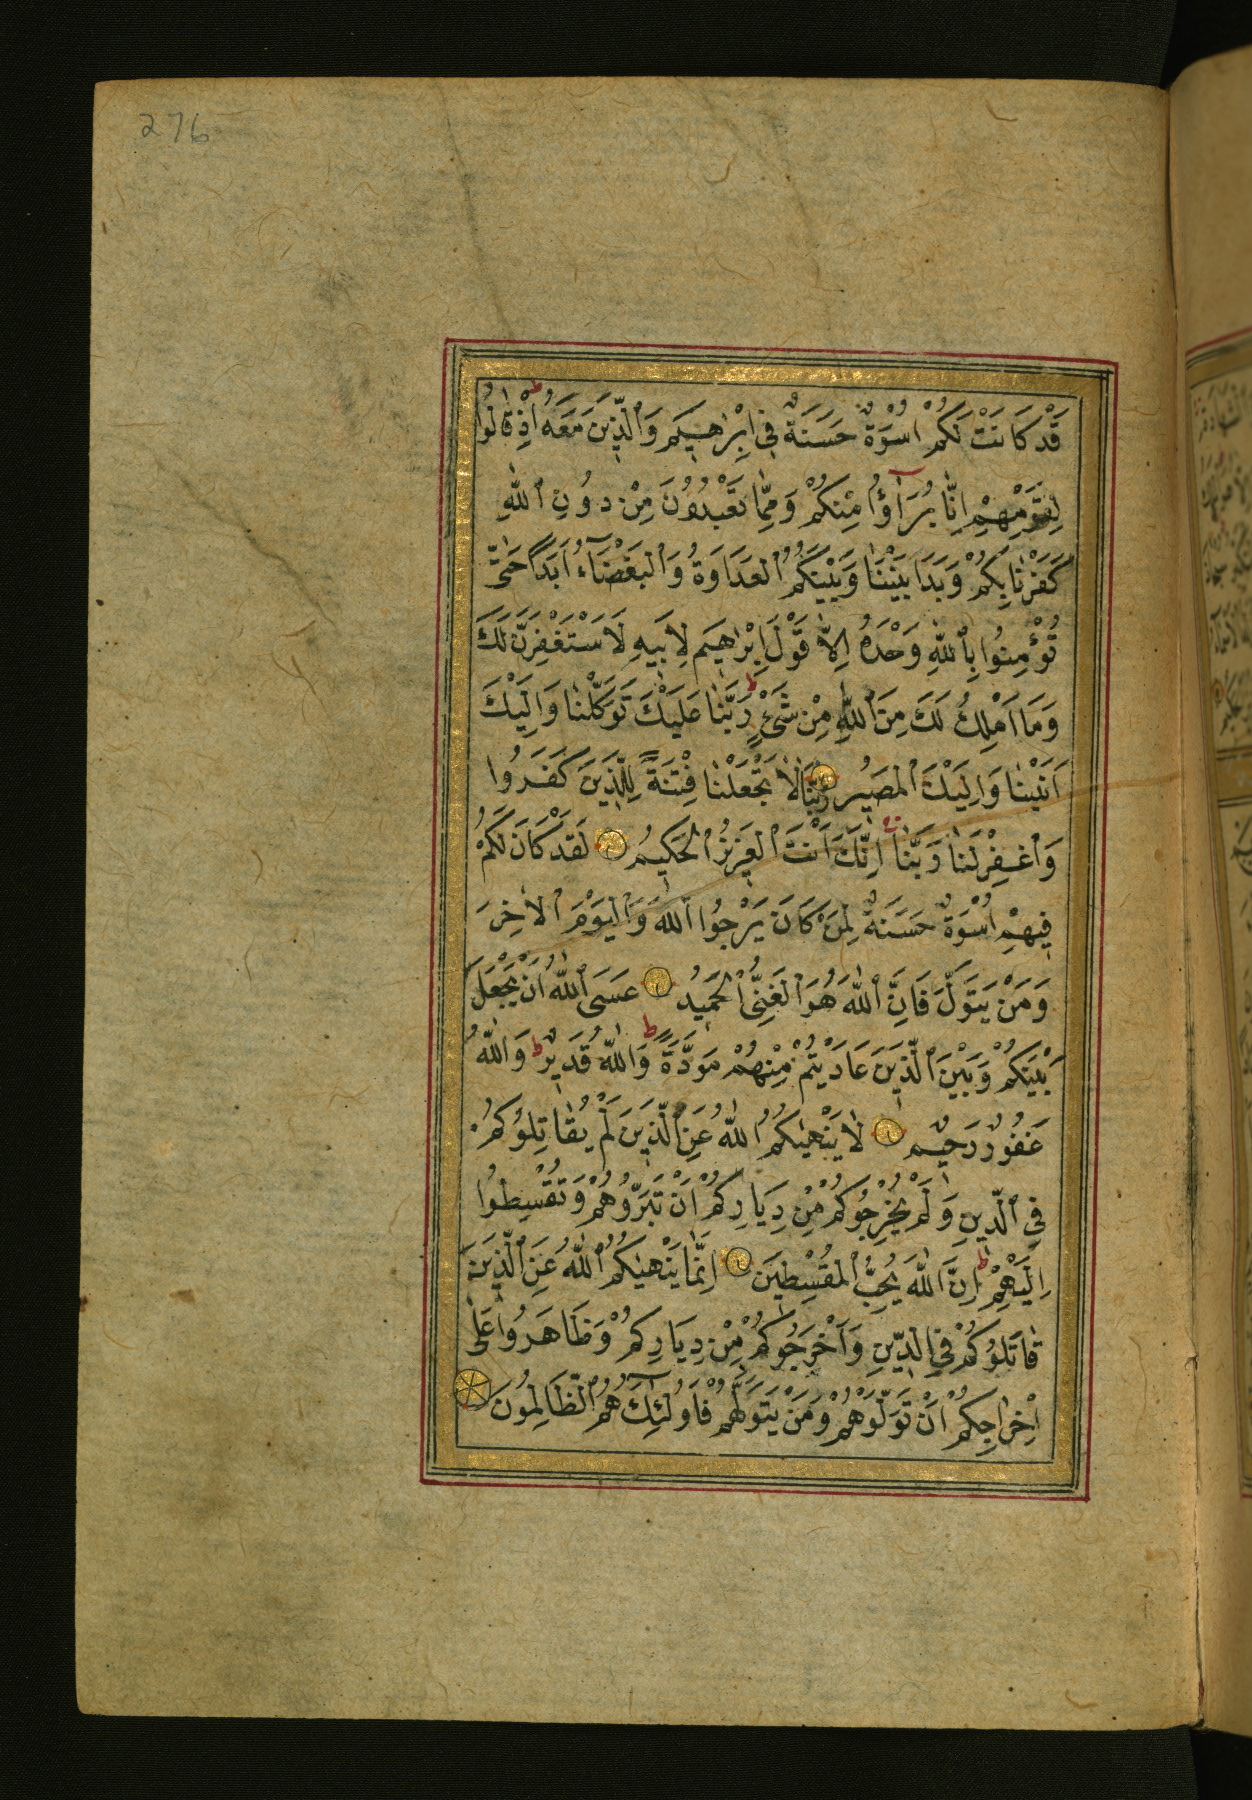 276
قَدْ كَانَتْ لَكُمْ اُسْوَةٌ حَسَنَةٌ فِى اِبْرٰهِيمَ وَالَّذِينَ مَعَهُ اِذْ قَالُوا
لِقَوْمِهِمْ اِنَّا بُرَآؤُا مِنْكُمْ وَمِمَّا تَعْبُدُونَ مِنْ دُونِ اللّٰهِ
كَفَرْنَا بِكُمْ وَبَدَا بَيْنَنَا وَبَيْنَكُمُ الْعَدَاوَةُ وَالْبَغْضَاءُ اَبَدًا حَتّٰى
تُؤْمِنُوا بِاللّٰهِ وَحْدَهُ اِلاَّ قَوْلَ اِبْرٰهِيمَ لِاَبِيهِ لَاَسْتَغْفِرَنَّ لَكَ
وَمَا اَمْلِكُ لَكَ مِنَ اللّٰهِ مِنْ شَىْءٍ ط رَبَّنَا عَلَيْكَ تَوَكَّلْنَا وَاِلَيْكَ
اَنَبْنَا وَاِلَيْكَ الْمَصِيْرُ رَبَّنَا لَا تَجْعَلْنَا فِتْنَةً لِلَّذِينَ كَفَرُوا
وَاغْفِرْ لَنَا رَبَّنَا اِنَّكَ اَنْتَ الْعَزِيزُ الْحَكِيمُ لَقَدْ كَانَ لَكُمْ
فِيهِمْ اُسْوَةٌ حَسَنَةٌ لِمَنْ كَانَ يَرْجُوا اللّٰهَ وَالْيَوْمَ الْاٰخِرَ
وَمَنْ يَتَوَلَّ فَاِنَّ اللّٰهَ هُوَ الْغَنِىُّ الْحَمِيدُ عَسَى اللّٰهُ اَنْ يَجْعَلَ
بَيْنَكُمْ وَبَيْنَ الَّذِينَ عَادَيْتُمْ مِنْهُمْ مَوَدَّةً ط وَاللّٰهُ قَدِيْرٌ ط وَاللّٰهُ
غَفُورٌ رَحِيْمٌ لَا يَنْهٰيكُمُ اللّٰهُ عَنِ الَّذِينَ لَمْ يُقَاتِلُوكُمْ
فِى الدِّينِ وَلَمْ يُخْرِجُوكُمْ مِنْ دِيَارِكُمْ اَنْ تَبَرُّوهُمْ وَتُقْسِطُوا
اِلَيْهِمْ ط اِنَّ اللّٰهَ يُحِبُّ الْمُقْسِطِينَ اِنَّمَا يَنْهٰيكُمُ اللّٰهُ عَنِ الَّذِينَ
قَاتَلُوكُمْ فِى الدِّينِ وَاَخْرَجُوكُمْ مِنْ دِيَارِكُمْ وَظَاهَرُوا عَلٰى
اِخْرَاجِكُمْ اَنْ تَوَلَّوْهُمْ وَمَنْ يَتَوَلَّهُمْ فَاُولٰئِكَ هُمُ الظَّالِمُونَ